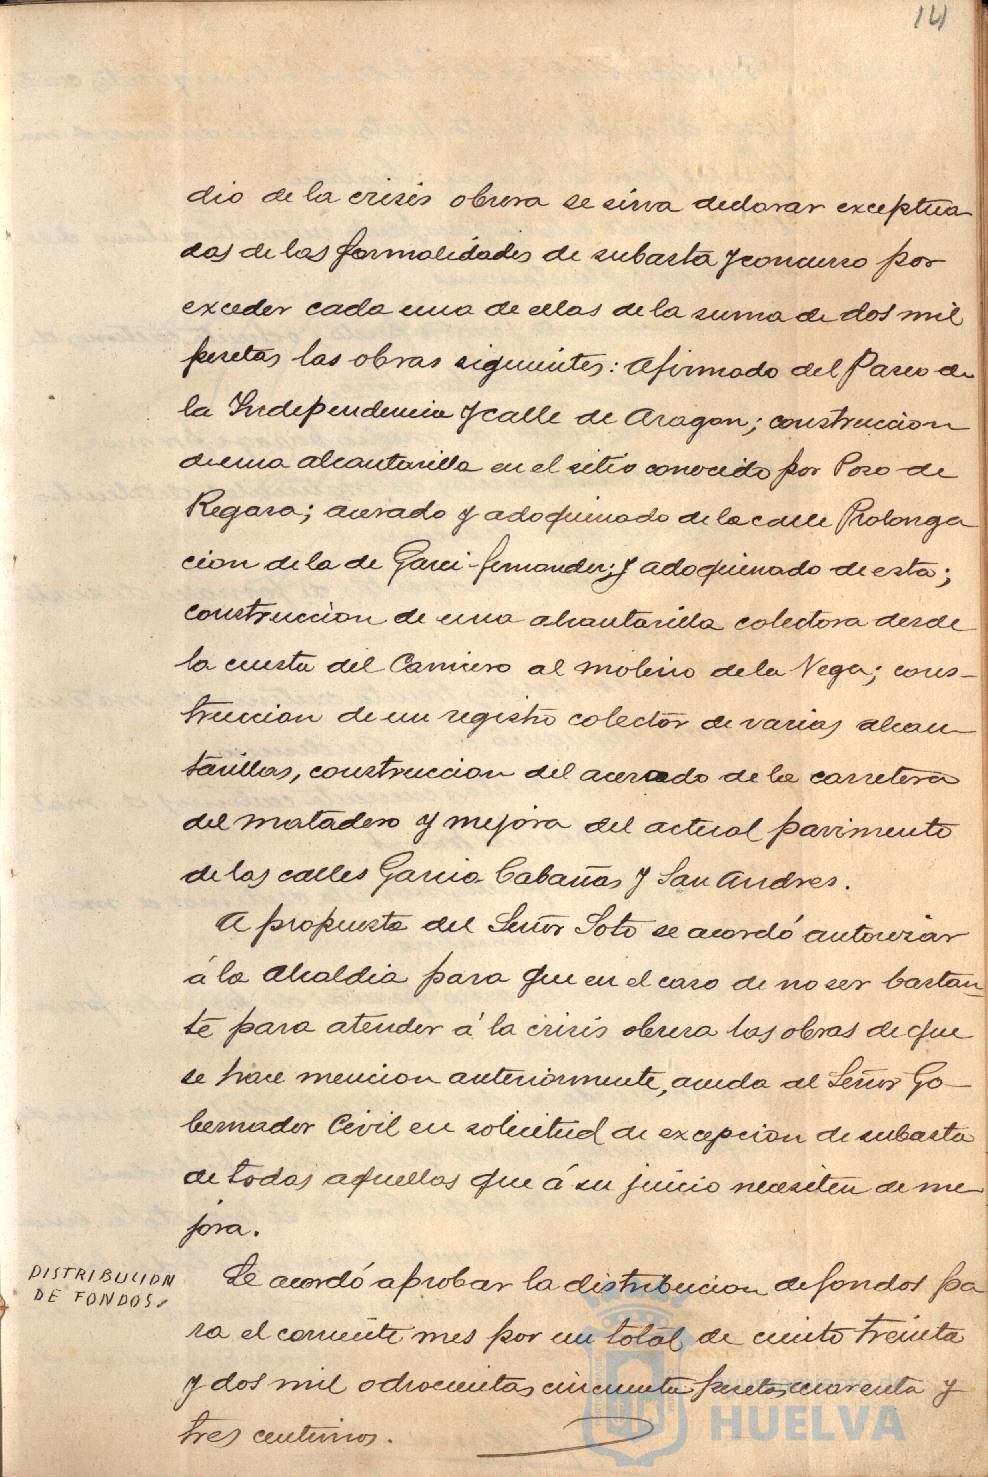 14
dio de la crisis obrera se sirva declarar exceptua-
das de las formalidades de subasta y concurso por
exceder cada una de ellas de la suma de dos mil
pesetas las obras siguientes: afirmado del Paseo de
la Independencia y calle de Aragon; construccion
de una alcantarilla en el sitio conocido por Pozo de
Regara; acerado y adoquinado de la calle Prolonga
cion de la de Garci-fernandez; y adoquinado de esta;
construccion de una alcantarilla colectora desde
la cuesta del Carnicero al molino de la Vega; cons-
truccion de un registro colector de varias alcan-
tarillas, construccion del acerado de la carretera
del matadero y mejora del actual pavimento
de las calles Garcia Cabañas y San Andres.
A propuesta del Señor Soto se acordó autorizar
á la Alcaldia para que en el caso de no ser bastan-
te para atender á la crisis obrera las obras de que
se hace mencion anteriormente, acuda al Señor Go-
bernador Civil en solicitud de excepcion de subasta
de todas aquellas que á su juicio necesiten de me-
jora.
DISTRIBUCION
DE FONDOS.
Se acordó aprobar la distribucion de fondos pa
ra el corriente mes por un total de ciento treinta
y dos mil ochocientas cincuenta pesetas cuarenta y
tres centimos.
Ayuntamiento de
HUELVA